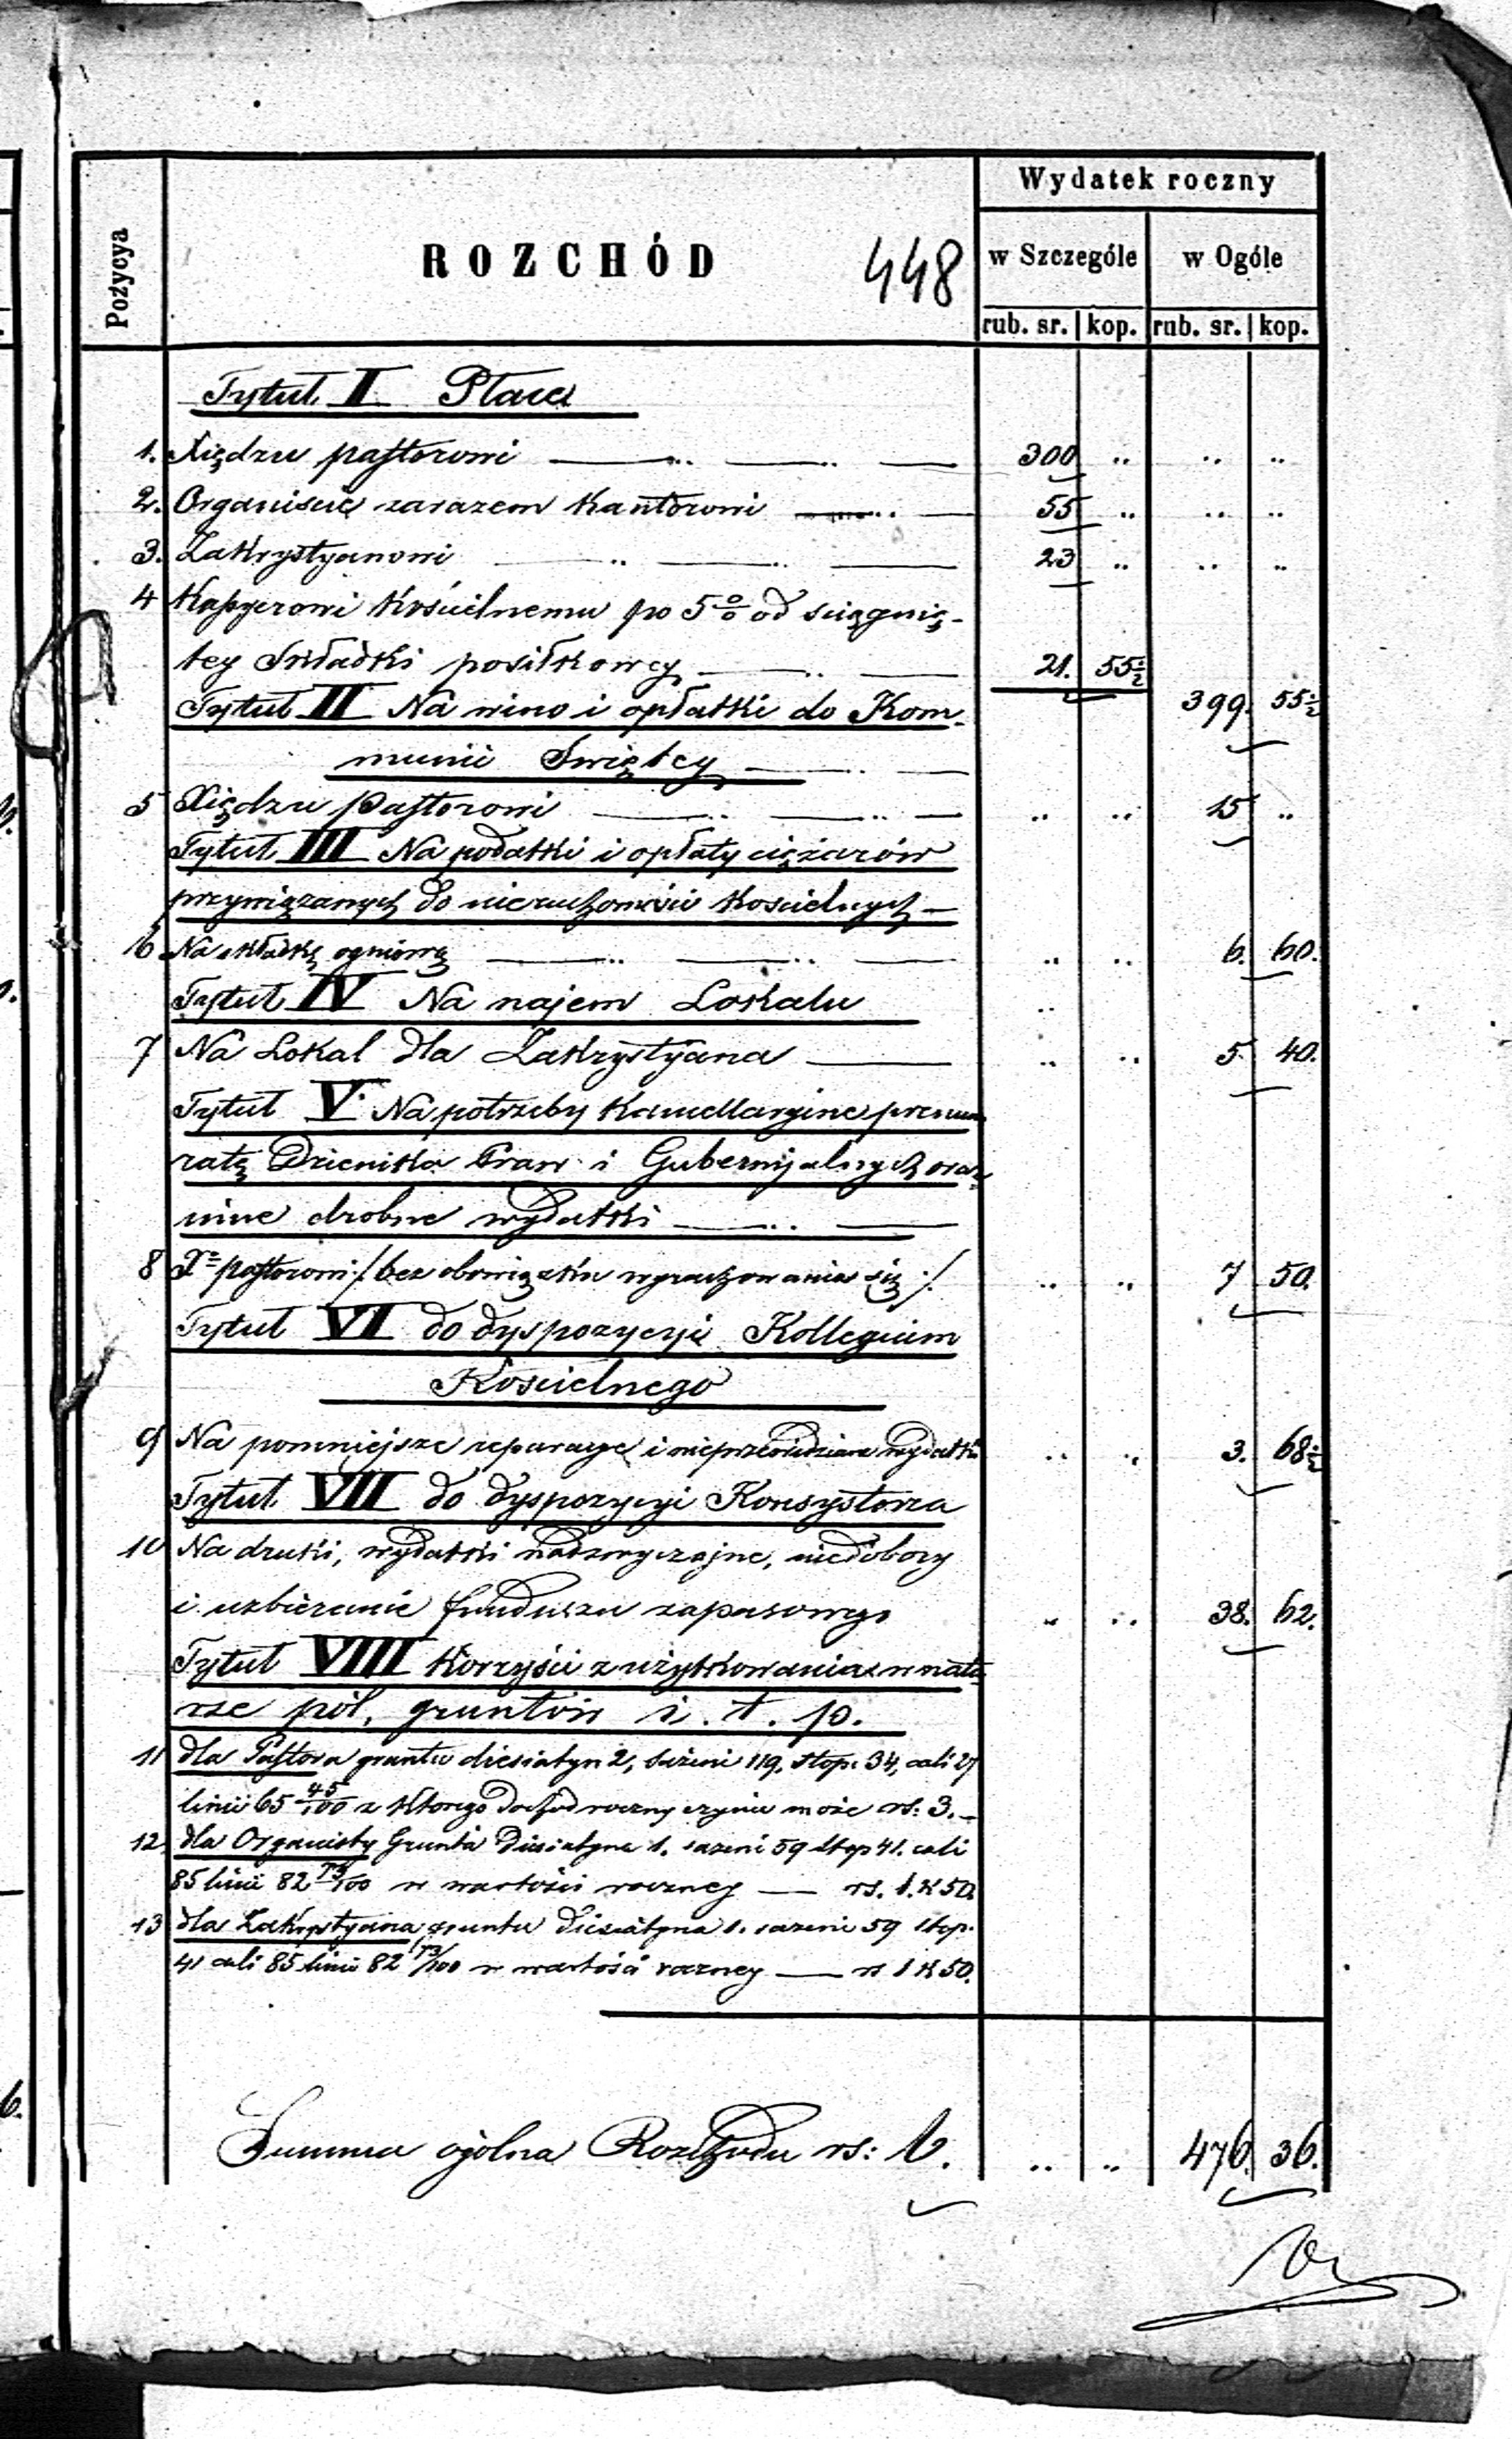 Wydatek roczny
Pozycya
ROZCHÓD
448
w Szczególe
w Ogóle
rub. sr. kop. rub. sr. kop.
Tytuł I Płace
1. Xiędzu pastorowi 300 .. .. ..
2. Organiście zarazem Kantorowi 55 .. .. ..
3. Zakrystyanowi 23 .. .. ..
4 Kassyerowi Kościelnemu po 5 % od sciągnię-
tey Składki posiłkowey 21. 55½
Tytuł II Na wino i opłatki do Kom- 399. 55½
munii Swiętey
5 Xiędzu Pastorowi .. .. 15 ..
Tytuł III Na podatki i opłaty ciężarów
przywiązanych do nieruchomości Kościelnych
6 Na składkę ogniową .. .. 6. 60.
Tytuł IV Na najem Lokalu ..
7 Na Lokal dla Zakrystyana .. .. 5. 40.
Tytuł V. Na potrzeby Kancellaryine prenume
ratę Dziennika Praw i Gubernijalnych oraz
inne drobne wydatki
8 Xu pastorowi /: bez obowiązku wyrachowania się :/ .. .. 7 50.
Tytuł VI do dyspozycyi Kollegium
Kościelnego
9 Na pomniejsze reparacye i nieprzewidziane wydatki .. .. 3. 68½
Tytuł VII do dyspozycyi Konsystorza
10 Na druki, wydatki nadzwyczajne, niedobory
i uzbieranie funduszu zapasowego .. .. 38. 62.
Tytuł VIII Korzyści z użytkowania w natu
rze pól, gruntów i. t. p.
11 dla Pastora gruntu diesiatyn 2, sażeni 119, stop. 34, cali 27
linii 65 45/100 z którego dochód roczny czynić może rs: 3.
12 dla Organisty Gruntu Diesiatyna 1. sażeni 59 stop 41. cali
85 linii 82 73/100 w wartości roczney rs. 1. K 50.
13 dla Zakrystyana gruntu Diesiatyna 1. sażeni 59 stop.
41 cali 85 linii 82 173/100 w wartości roczney rs 1 K 50.
Summa ogólna Rozchodu rs: .. .. 476. 36.